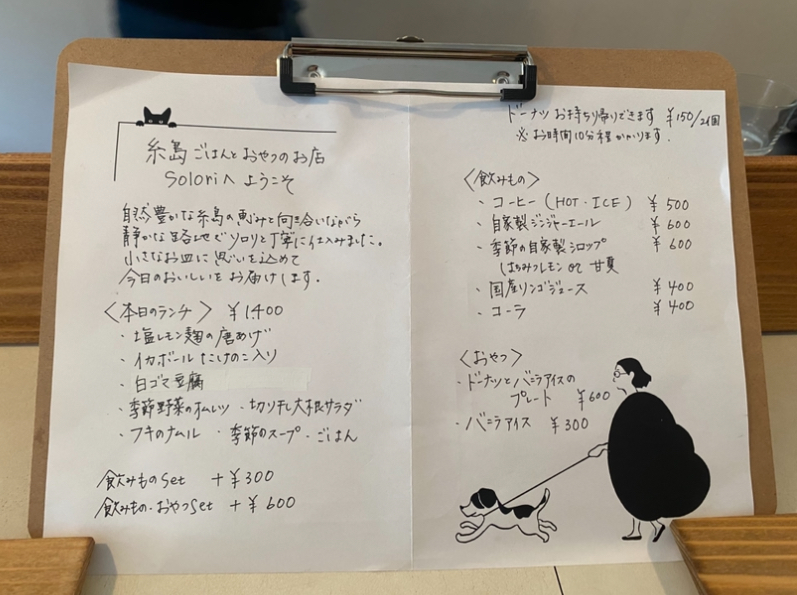 糸島 ごはんとおやつのお店
Soloriへ ようこそ
自然豊かな糸島の恵みと向き合いながら
静かな路地でソロリと丁寧に仕込みました。
小さなお皿に思いを込めて
今日のおいしいをお届けします。
〈本日のランチ〉 ¥1400
・塩レモン麹の唐あげ
・イカボール たけのこ入り
・白ゴマ豆腐
・季節野菜のオムレツ ・切り干し大根サラダ
・フキのナムル ・季節のスープ ・ごはん
飲みものset +¥300
飲みもの・おやつset +¥600
ドーナツ お持ち帰りできます ¥150/2個
※お時間10分程かかります.
〈飲みもの〉
・コーヒー (HOT・ICE) ¥500
・自家製ジンジャーエール ¥600
・季節の自家製シロップ ¥600
はちみつレモン or 甘夏
・国産リンゴジュース ¥400
・コーラ ¥400
〈おやつ〉
・ドーナツとバニラアイスの
プレート ¥600
・バニラアイス ¥300